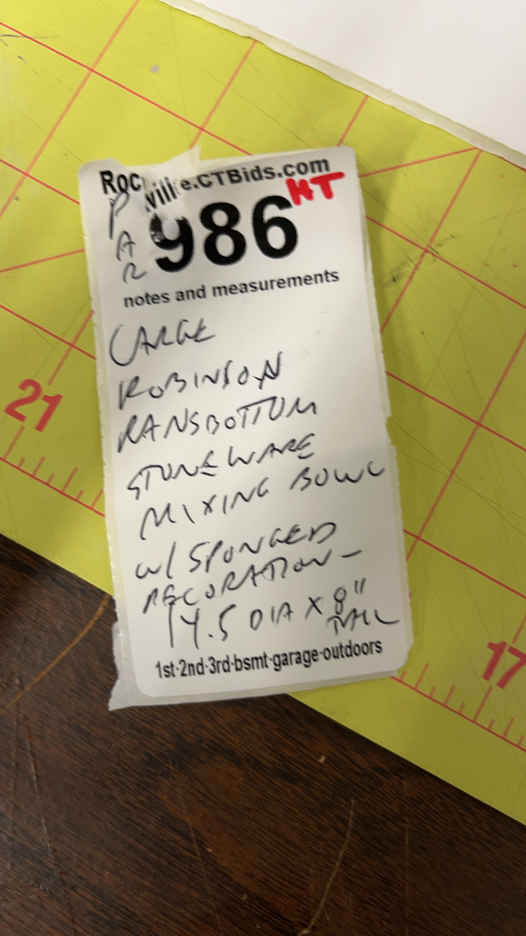 Roc ville.CTBids.com
HT
PAR
986
notes and measurements
LARGE
ROBINSON
RANSBOTTOM
STONEWARE
MIXING BOWL
W/ SPONGED
DECORATION -
14.5 DIA X 8"
TALL
1st·2nd·3rd·bsmt·garage·outdoors
21
17